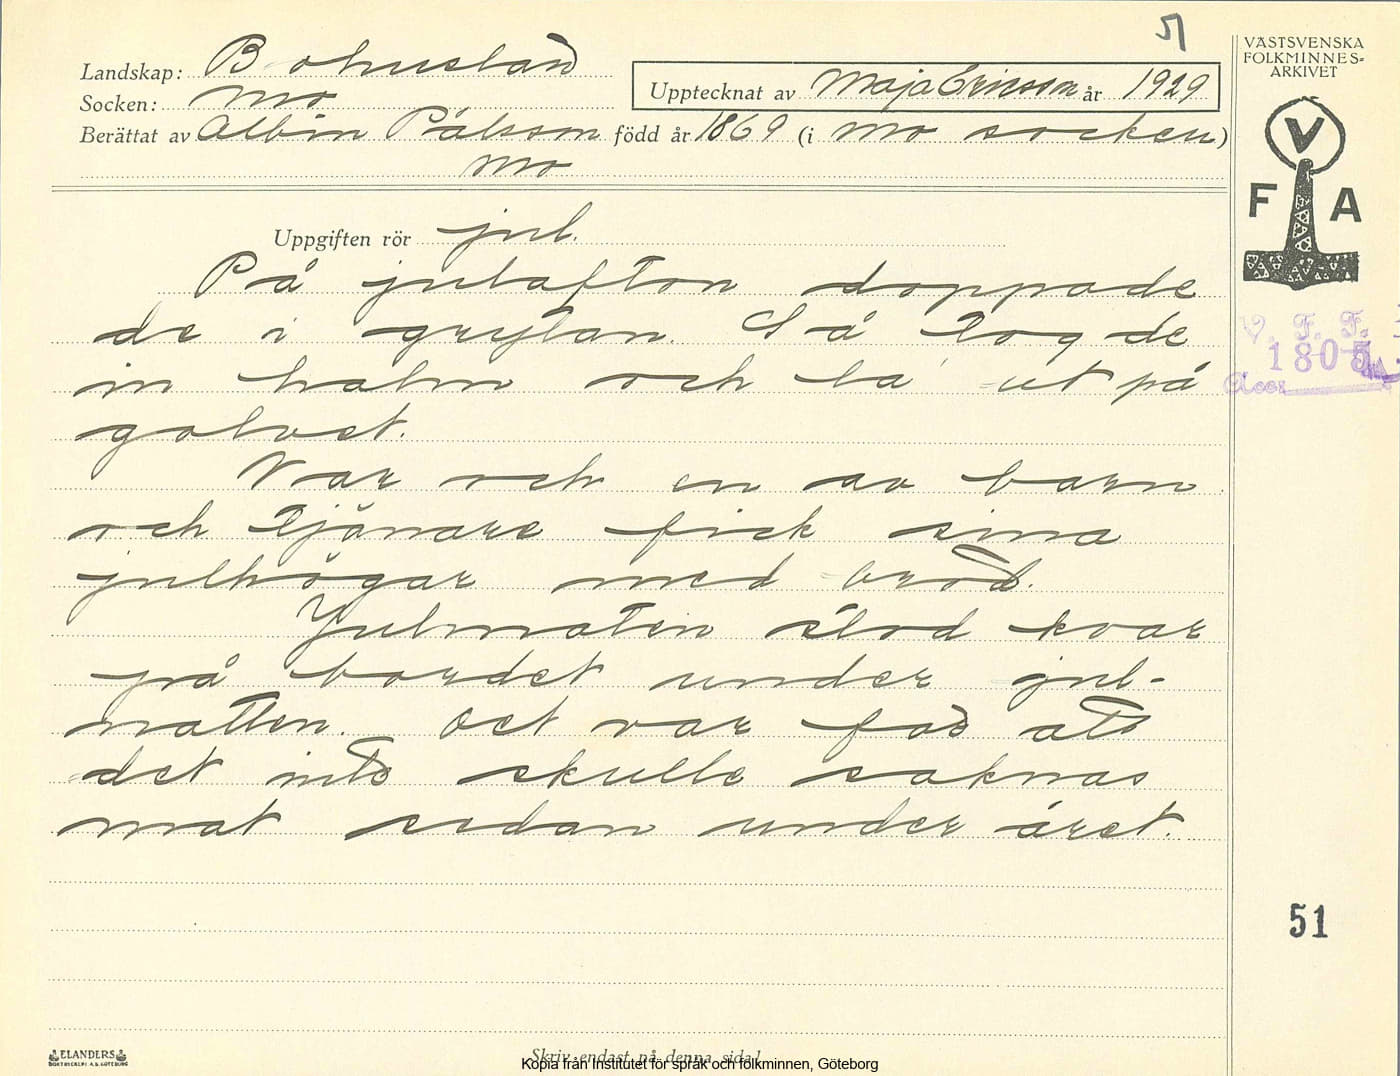 51
VÄSTSVENSKA
FOLKMINNES-
ARKIVET
Landskap: Bohuslän
Socken: Mo
Upptecknat av Maja Ericsson år 1929
Berättat av Albin Pålsson född år 1869 (i Mo socken)
Mo
V
F A
Uppgiften rör jul.
På julafton doppade
de i grytan. Så tog de
in halm och la' ut på
golvet.
Var och en av barn
och tjänare fick sina
julhögar med bröd.
Julmaten stod kvar
på bordet under jul-
natten. Det var för att
det inte skulle saknas
mat sedan under året.
V. F. F.
1805
Acc.
51
ELANDERS
BOKTRYCKERI A.B. GÖTEBORG
Skriv endast på denna sida!
Kopia från Institutet för språk och folkminnen, Göteborg